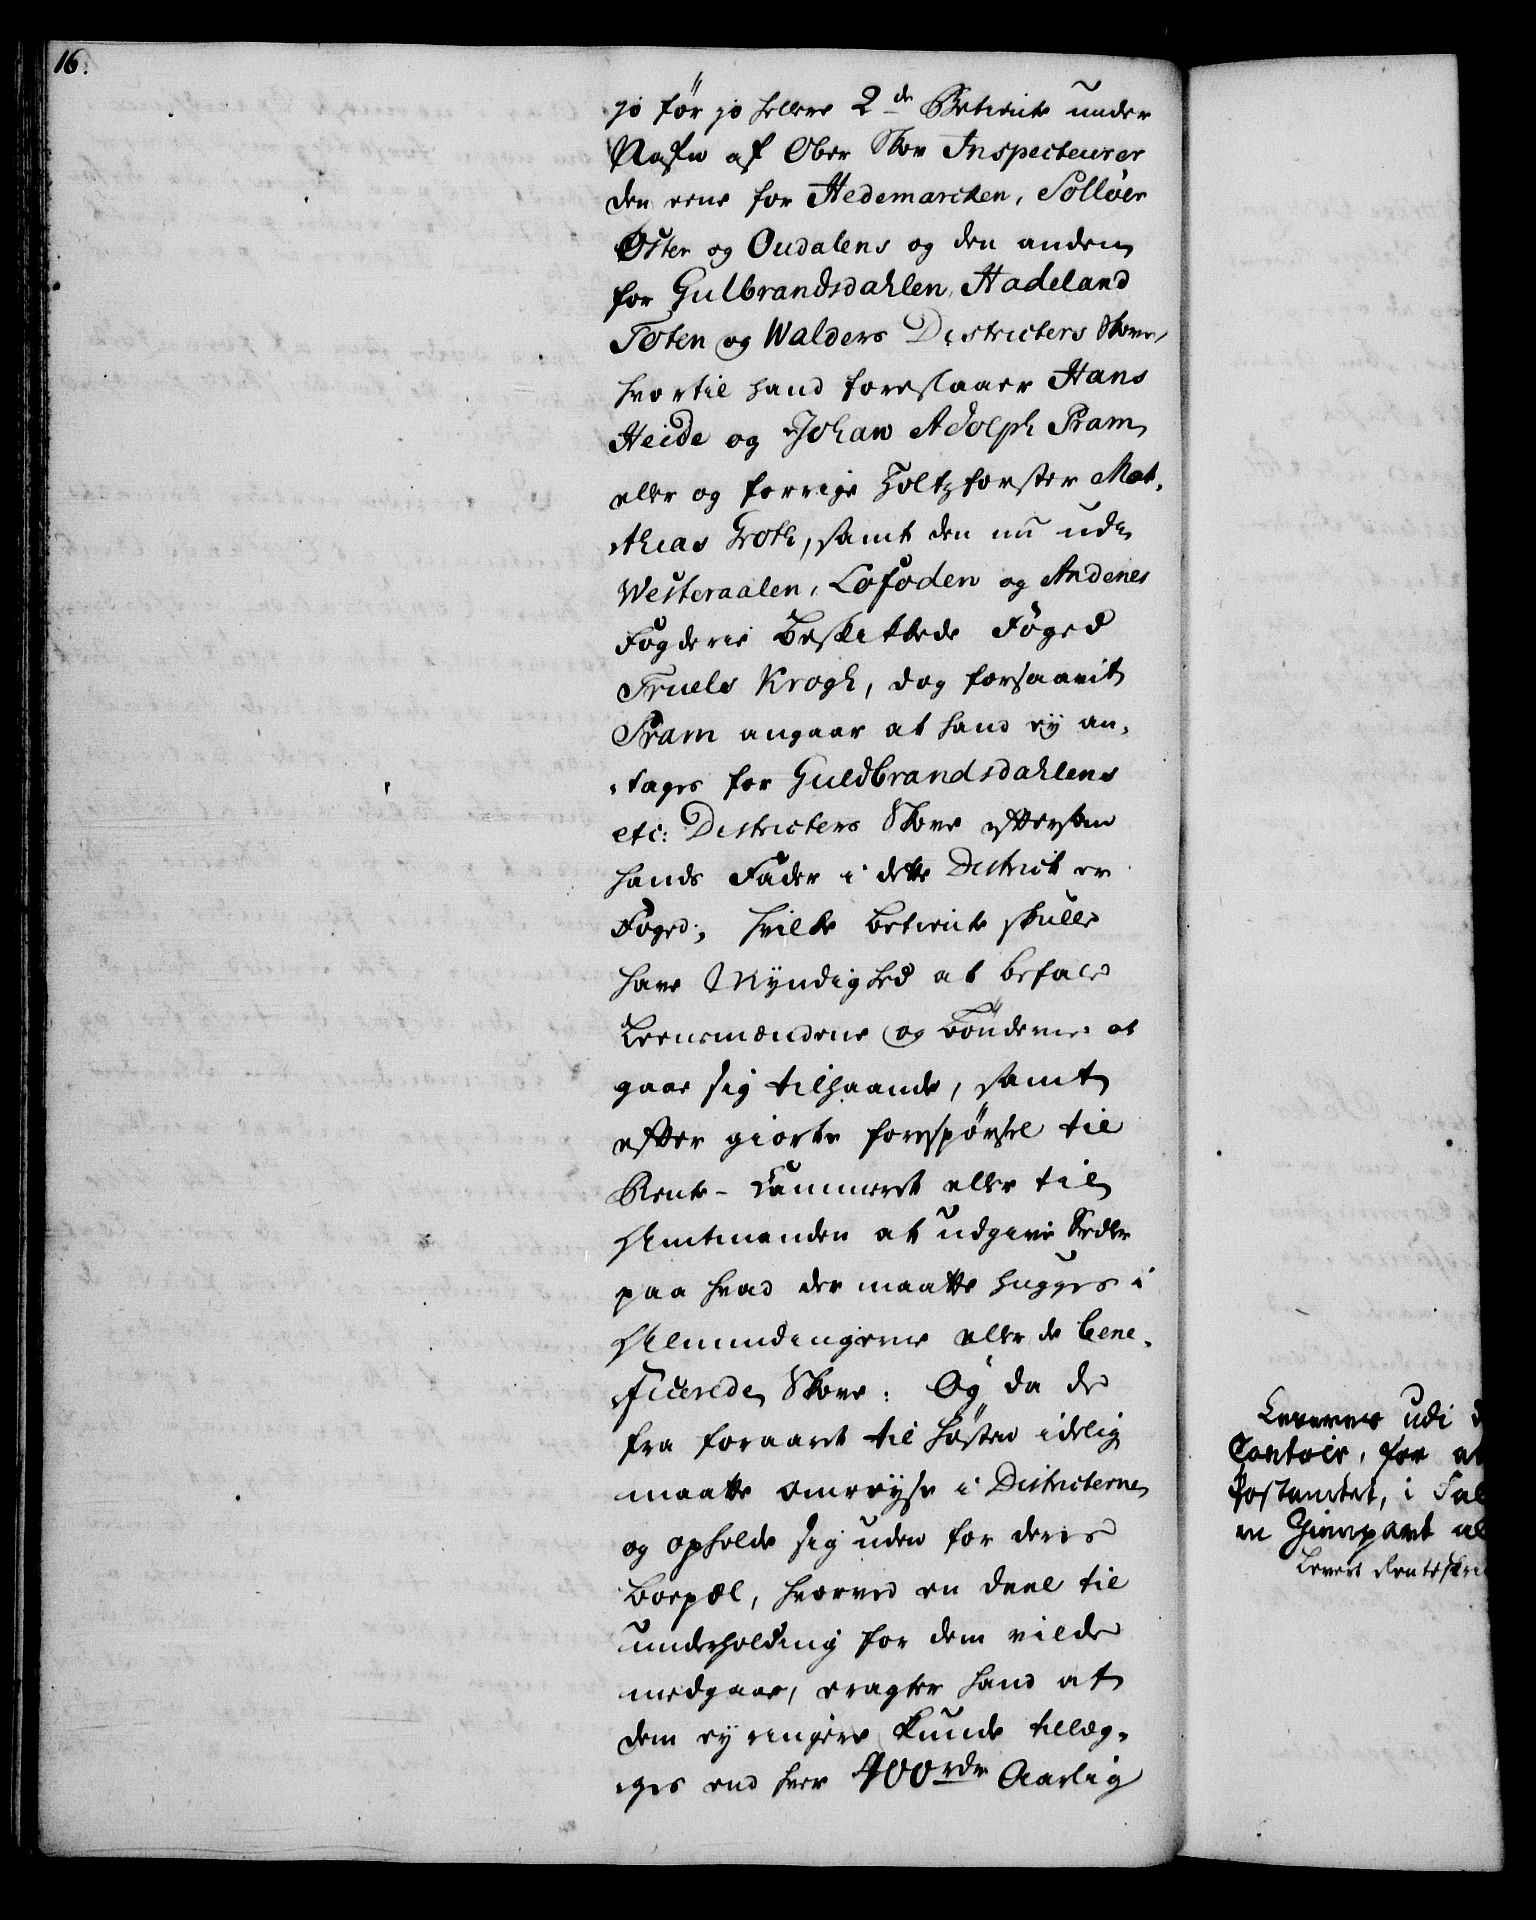 16.
jo för jo hellere 2de Betiente under
Nafn af Ober Skov Inspecteurer
den eene for Hedemarcken, Solløer
Øster og Oudalens og den anden
for Gulbrandsdahlen, Hadeland
Toten og Walders Districters Skove,
hvortil hand foreslaaer Hans
Heide og Johan Adolph Pram,
eller og forrige Holtzforster Mat,
thias Groth, samt den nu udi
Westeraalen, Lofoden og Andenes
Fogderie Beskikkede Foged
Truels Krogh, dog forsaavit
Pram angaar at hand ey an,
tages for Guldbrandsdahlens
etc: Districters Skove efftersom
hands Fader i dette District er
Foged; hvilke betiente skulle
have Myndighed at befale
Leensmændene og Bönderne at
gaae sig tilhaande, samt
effter giorte forespörsel til
Rente-Cammeret eller til
Amtmanden at udgive Sedler
paa hvad der maatte hugges i
Almindingerne eller de bene,
ficerede Skove: Og da de
fra foraaret til Høsten idelig
maatte omreyse i Districterne
og opholde sig uden for deres
Boepæl, hvorved en deel til
underholding for dem vilde
medgaae, eragter hand at
dem ey ringere kunde tillæg,
ges end hver 400 rdr Aarlig
Leveres udi
Contoir, for at
Postamtet, i
en Gienpart